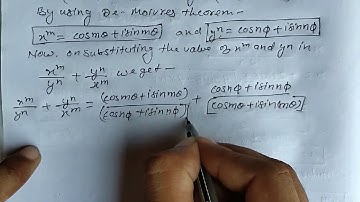 By using De-Moivres theorem-
x^m = cosmθ + isinmθ and y^n = cosnϕ + isinnϕ
Now, on substituting the value of x^m and y^n in
x^m/y^n + y^n/x^m we get -
x^m/y^n + y^n/x^m = (cosmθ + isinmθ)/(cosnϕ + isinnϕ) + cosnϕ + isinnϕ/[cosmθ + isin(mθ)]